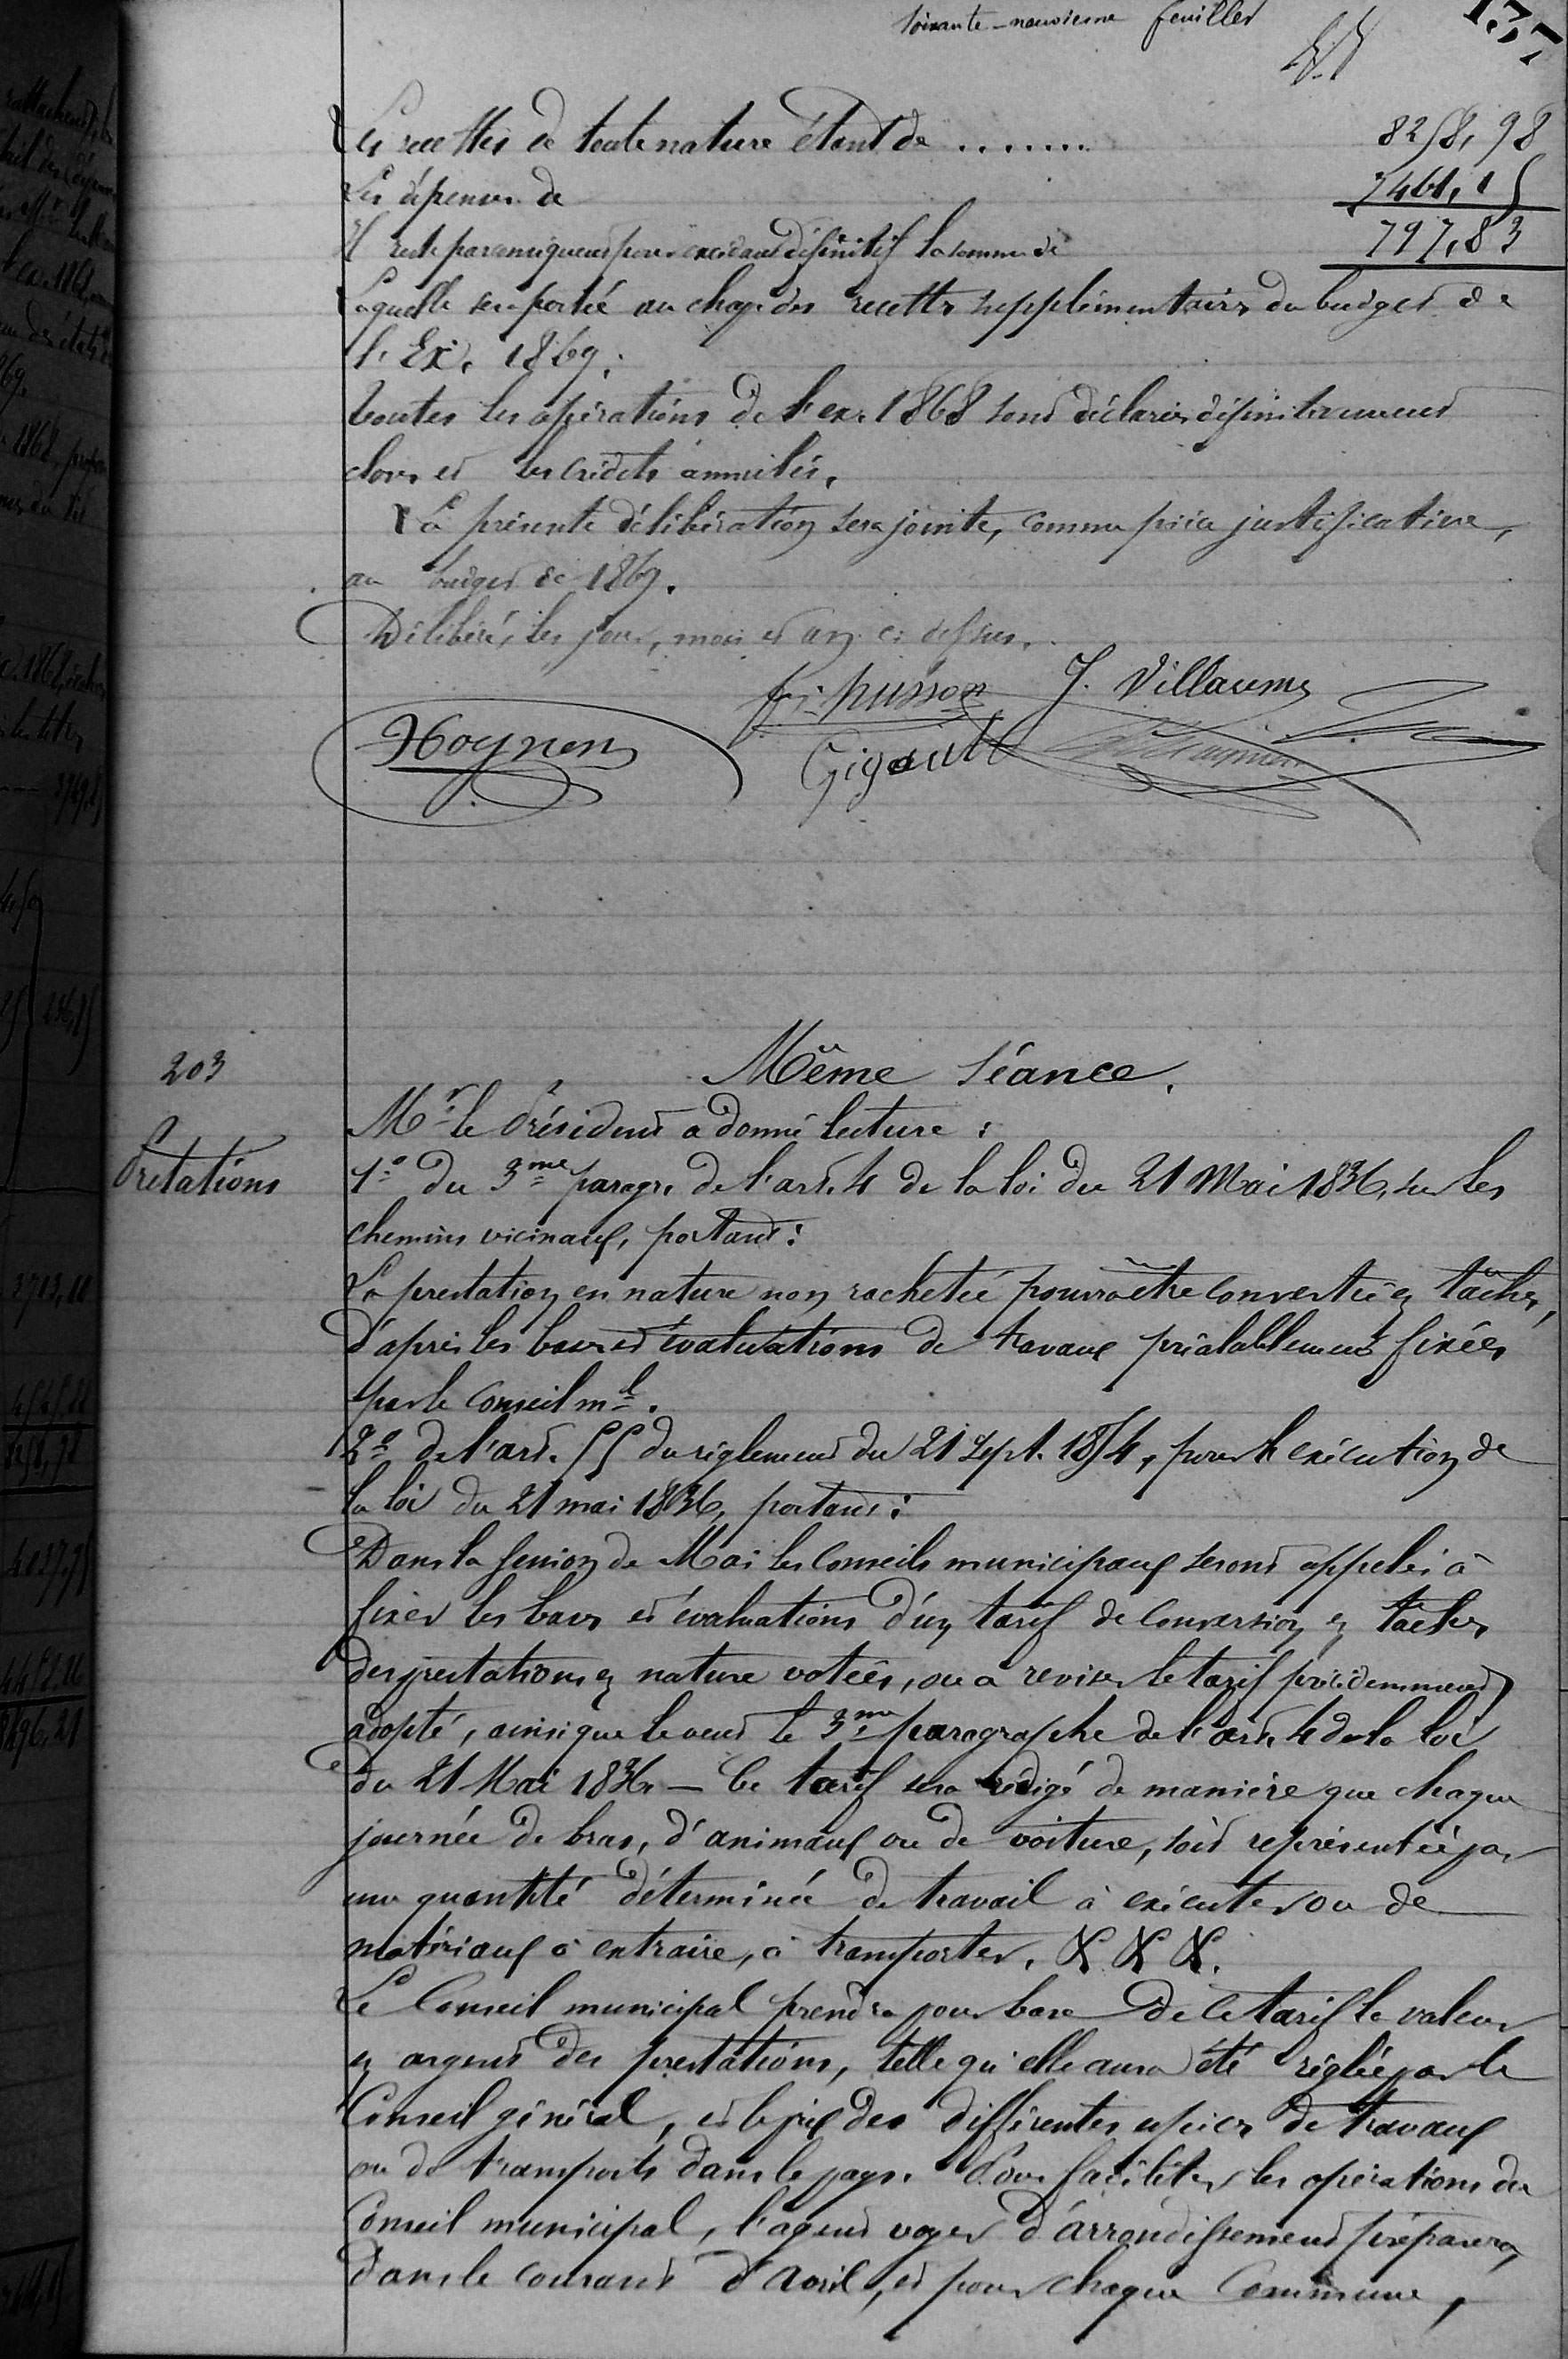 soixante-neuvième feuillet
Les recettes de toute nature étant de ....... 8258,98
Les dépenses de 7461,15
Il reste par conséquent pour excédant définitif la somme de 797,83
Laquelle sera portée au chap. des recettes supplémentaires du budget de
l'Ex. 1869.
Toutes les opérations de l'ex. 1868 sont déclarées définitivement
closes et les crédits annulés.
La présente délibération sera jointe, comme pièce justificative,
au budget de 1869.
Délibéré, les jour, mois et an ci-dessus.
husson J. Villaume
Hoynon Gigoult
203
Même Séance.
Mr. le Président a donné lecture :
Prétations
1º du 3me paragr. de l'art. 4 de la loi du 21 Mai 1836, sur les
chemins vicinaux, portant :
La prestation en nature non rachetée pourra être convertie en tâches,
d'après les bases et évaluations de travaux préalablement fixées
par le Conseil ml.
2º de l'art. 55 du règlement du 21 Sept. 1854, pour l'exécution de
la loi du 21 mai 1836, portant :
Dans la session de Mai les Conseils municipaux seront appelés à
fixer les bases et évaluations d'un tarif de conversion en tâches
des prestations en nature votées, ou à reviser le tarif précédemment
adopté, ainsi que le veut le 3me paragraphe de l'art. 4 de la loi
du 21 Mai 1836. — Ce tarif sera rédigé de manière que chaque
journée de bras, d'animaux ou de voiture, soit représentée par
une quantité déterminée de travail à exécuter ou de
matériaux à extraire, à transporter. & & &.
Le Conseil municipal prendra pour base de ce tarif la valeur
en argent des prestations, telle qu'elle aura été réglée par le
Conseil général, et le prix des différentes espèces de travaux
ou de transports dans le pays. Pour faciliter les opérations du
Conseil municipal, l'agent voyer d'arrondissement préparera,
dans le courant d'avril, et pour chaque Commune,